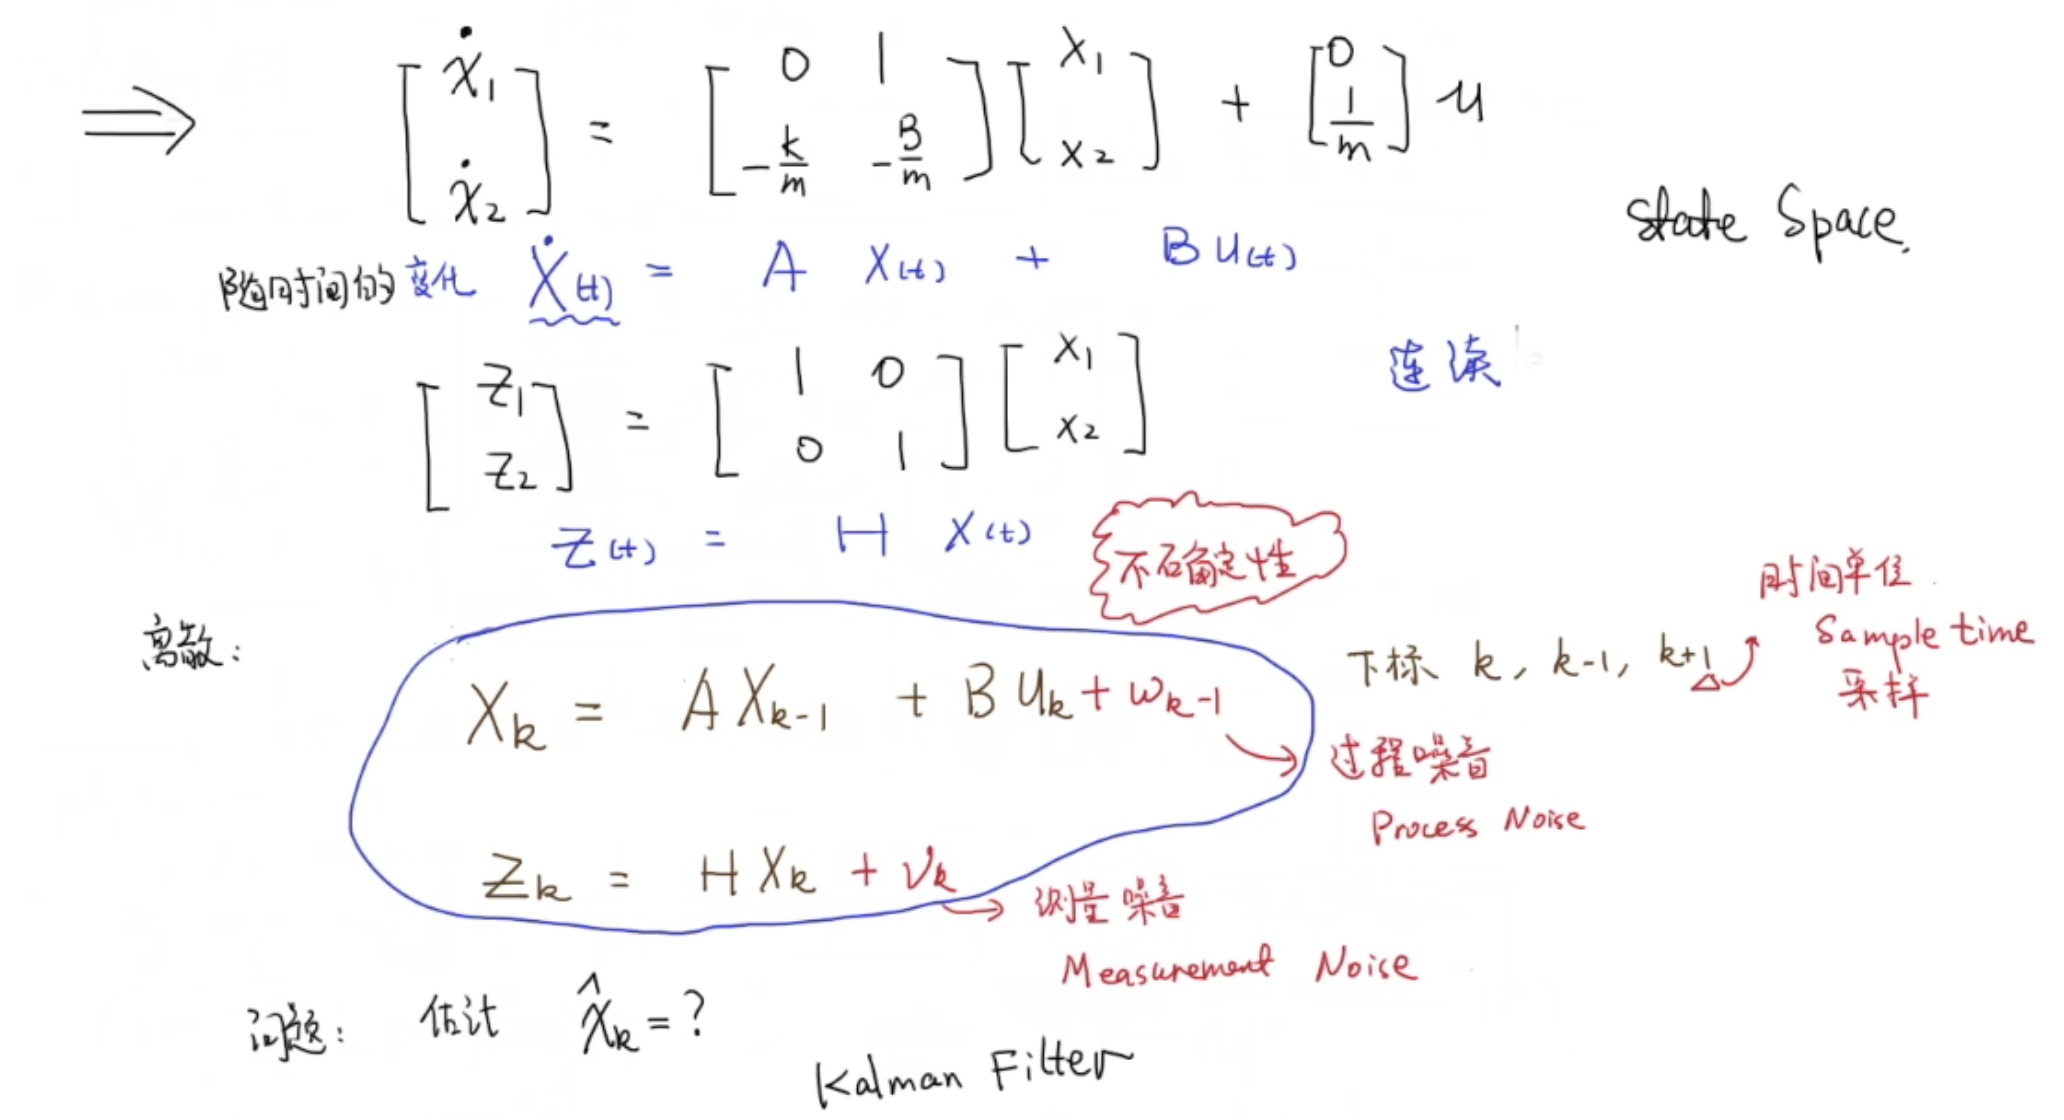 ⇒ [ẋ₁ ẋ₂] = [0 1 -k/m -B/m] [x₁ x₂] + [0 1/m] u
State Space.
随时间的变化 Ẋ(t) = A X(t) + B u(t)
[z₁ z₂] = [1 0 0 1] [x₁ x₂]
连续
Z(t) = H X(t)
不确定性
离散:
X_k = A X_{k-1} + B u_k + ω_{k-1}
下标 k, k-1, k+1
时间单位
Sample time
采样
过程噪音
Process Noise
Z_k = H X_k + ν_k
测量噪音
Measurement Noise
问题: 估计 x̂_k = ?
Kalman Filter